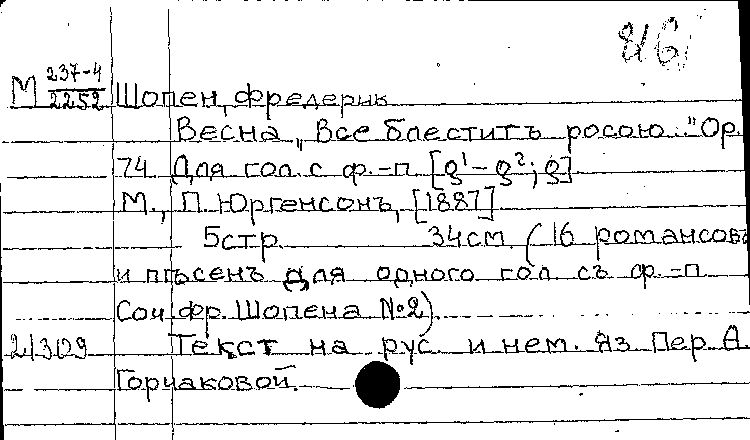 816
М 237-4/2252 Шопен, Фредерик
Весна „Все блеститъ росою..." Ор.
74. Для гол. с ф.-п. [g¹-g²; g]
М., П. Юргенсонъ, [1887]
5стр. 34см. (16 романсовъ
и пѣсенъ для одного гол. съ ф.=п.
Соч. фр. Шопена №2).
21309 Текст на рус. и нем. яз. Пер. А.
Горчаковой.